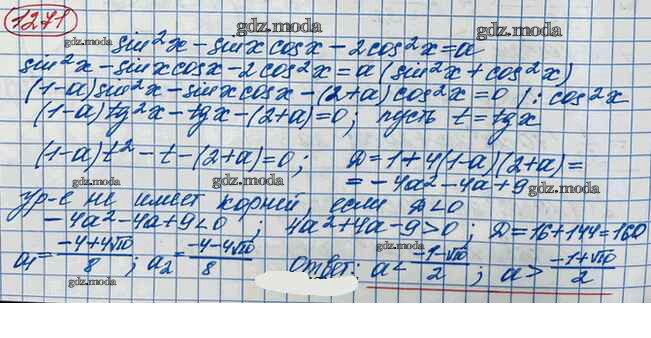 1271
gdz.moda
gdz.moda gdz.moda
sin²x - sinx cosx - 2cos²x = a
sin²x - sinx cosx - 2cos²x = a(sin²x + cos²x)
(1-a)sin²x - sinx cosx - (2+a)cos²x = 0 /: cos²x
(1-a)tg²x - tgx - (2+a) = 0; пусть t = tgx
gdz.moda gdz.moda
(1-a)t² - t - (2+a) = 0; D = 1+4(1-a)(2+a) =
gdz.moda gdz.moda
= -4a² - 4a + 9 gdz.moda
Ур-е не имеет корней, если D<0
-4a² - 4a + 9 < 0; 4a² + 4a - 9 > 0; D = 16 + 144 = 160
gdz.moda gdz.moda
a₁ = (-4+4√10)/8; a₂ = (-4-4√10)/8 Ответ: a < (-1-√10)/2; a > (-1+√10)/2
gdz.moda gdz.moda